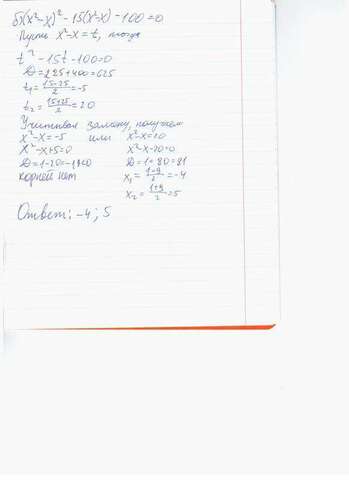 б) (x²-x)² -15(x²-x) -100=0
Пусть x²-x=t, тогда
t²-15t-100=0
D=225+400=625
t₁=(15-25)/2=-5
t₂=(15+25)/2=20
Учитывая замену, получаем
x²-x=-5 или x²-x=20
x²-x+5=0 x²-x-20=0
D=1-20=-19<0 D=1+80=81
корней нет x₁=(1-9)/2=-4
x₂=(1+9)/2=5
Ответ: -4; 5